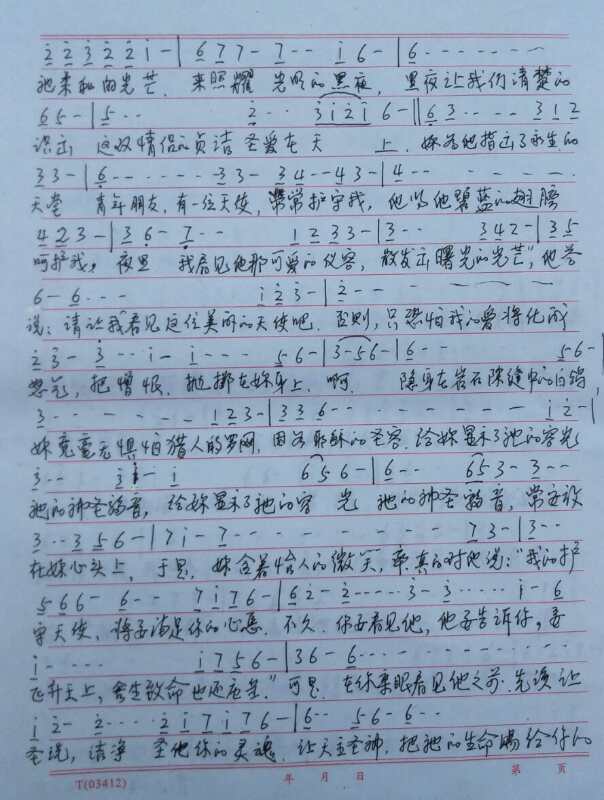 2 2 3 2 2 1 - | 6 7 7 - 7 - - 1 6 - | 6 - - - - - -
祂柔和的光芒，来照耀 光明的黑夜，黑夜让我们清楚的
6 5 - | 5 - - 2 - - 3 1 2 1 6 - || 6 3 - - - - 3 1 2
认出 这双情侣的贞洁 圣爱在天 上，妹为他指出了永生的
3 3 - | 6 - - - - - - 3 3 - 3 4 - - 4 3 - | 4 - -
天堂 青年朋友，有一位天使，常常护守我，他以他碧蓝的翅膀
4 2 3 - | 3 6 - 7 - - 1 2 3 3 - | 3 - - 3 4 2 - | 3 5
呵护我，夜里 我看见他那可爱的仪容，散发出曙光的光芒"，他答
6 - 6 - - - 1 2 3 - | 2 - -
说：请让我看见这位美丽的天使吧，否则，只恐怕我的爱将化成
2 3 - 3 - - 1 - 1 - - - 5 6 - | 3 - 5 6 - | 6 - - 5 6 -
怒氣，把憎恨，抛掷在妹身上，啊， 隐身在岩石隙缝中的白鸽，
3 - - - - - - - 1 2 3 - | 3 3 6 - - - - - - - 1 2 - |
妹竟毫无惧怕猎人的罗网，因为耶稣的圣容，给妹显示了祂的容光
3 - - 3 - 1 6 5 6 - | 6 - - 6 5 3 - 3 - -
祂的神圣福音，给妹显示了祂的容 光 祂的神圣福音，常安放
3 - - 3 5 6 - | 7 1 - 7 - - - - - - - - 7 3 - | 3 - -
在妹心头上，于是，妹含着怡人的微笑，率真的对他说："我的护
5 6 6 - 6 - - 7 1 7 6 - | 6 2 - 2 - - - - 3 - 3 - - - - 1 - 6
守天使，将要满足你的心愿，不久，你要看见他，他要告诉你，要
1 - - - - 1 7 5 6 - | 3 6 - 6 - - - - - - -
飞升天上，舍生致命也还应是。"可是，在你亲眼看见他之前，先须让
1 2 - 2 - - - 2 1 7 1 7 6 - | 6 - - 5 6 - 6 - -
圣洗，洁净 圣化你的灵魂，让天主圣神，把祂的生命赐给你的
T(03412) 年 月 日 第 页